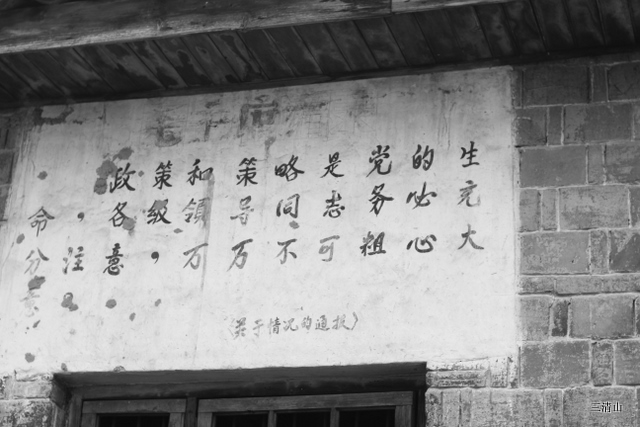 政策和策略是党的生
命，各级領导同志务必充
分注意，万万不可粗心大
意
〈关于情况的通报〉
三清山